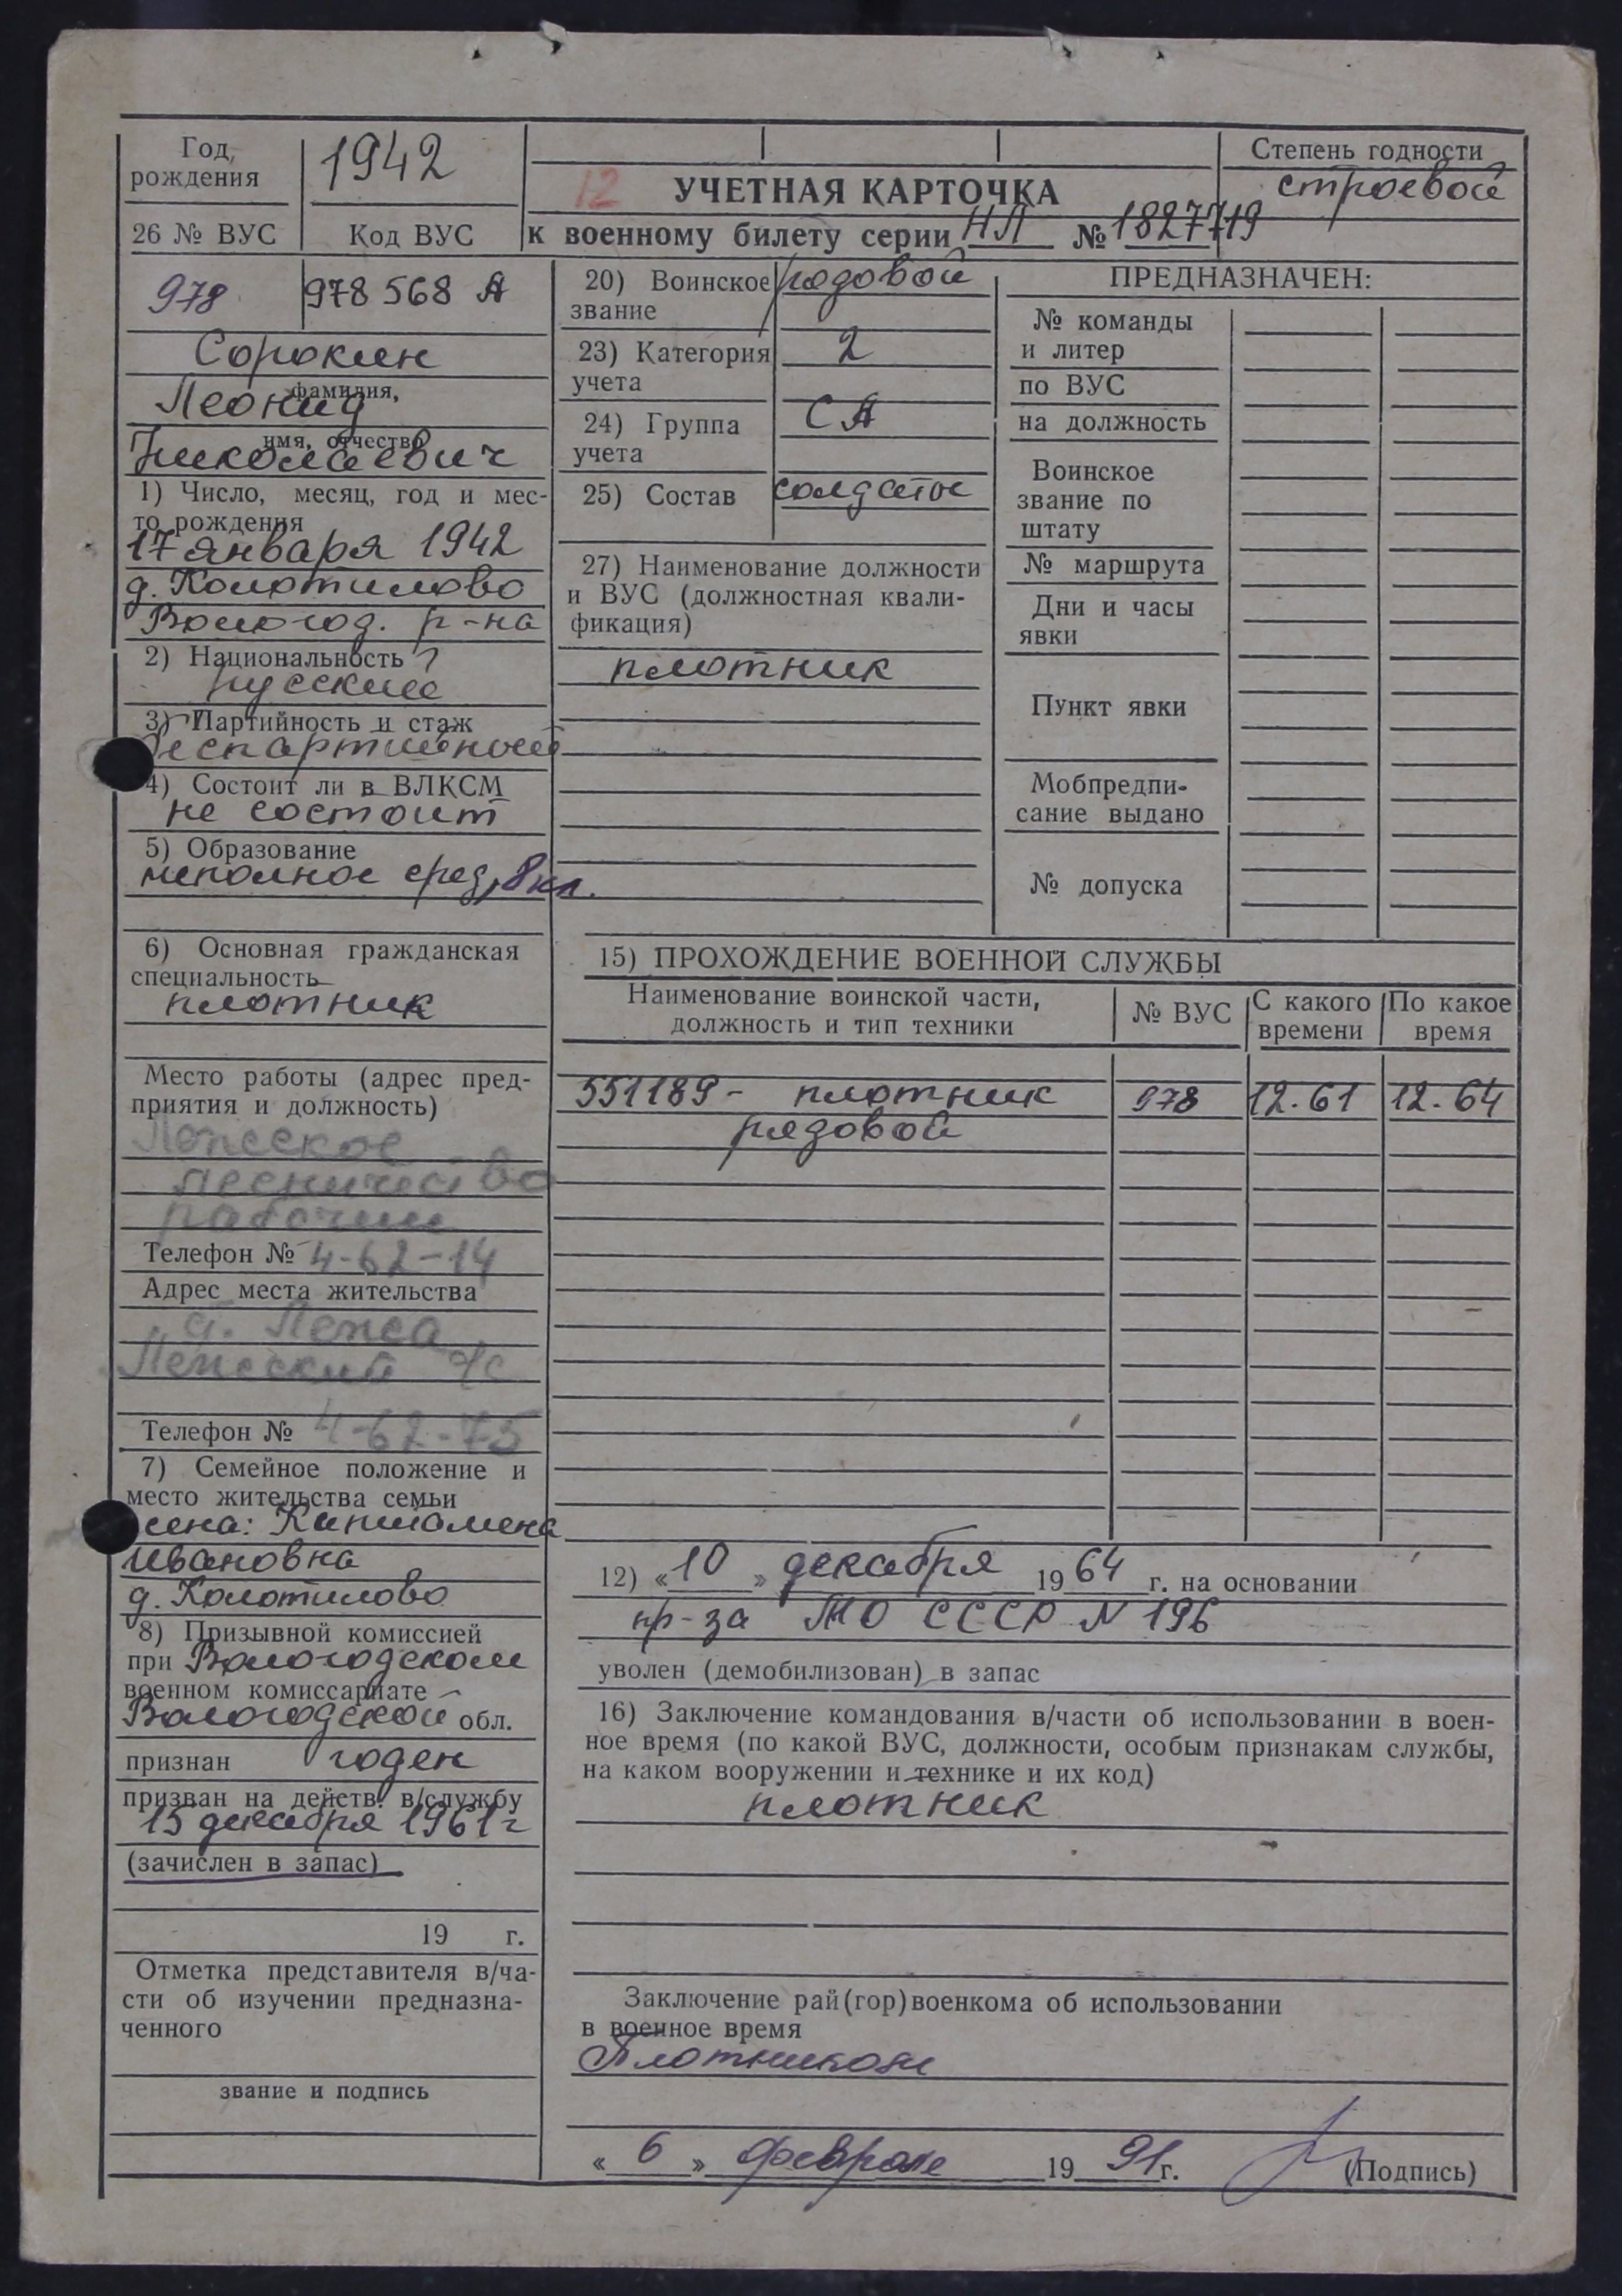 Год рождения 1942
12 УЧЕТНАЯ КАРТОЧКА
Степень годности
строевой
26 № ВУС Код ВУС
к военному билету серии НЛ № 1827719
978 978 568 А
Сорокин
фамилия,
Леонид
имя, отчество
Николаевич
1) Число, месяц, год и мес-
то рождения
17 января 1942
д. Колотилово
Вологод. р-на
2) Национальность
русский
3) Партийность и стаж
беспартийный
4) Состоит ли в ВЛКСМ
не состоит
5) Образование
неполное сред, 8 кл.
6) Основная гражданская
специальность
плотник
Место работы (адрес пред-
приятия и должность)
лесничество
рабочий
Телефон № 4-62-14
Адрес места жительства
Телефон № 4-62-75
7) Семейное положение и
место жительства семьи
жена:
Ивановна
д. Колотилово
8) Призывной комиссией
при Вологодском
военном комиссариате
Вологодской обл.
признан годен
призван на действ. в/службу
15 декабря 1961 г
(зачислен в запас)
19 г.
Отметка представителя в/ча-
сти об изучении предназна-
ченного
звание и подпись
20) Воинское звание рядовой
23) Категория учета 2
24) Группа учета СА
25) Состав солдаты
27) Наименование должности
и ВУС (должностная квали-
фикация)
плотник
ПРЕДНАЗНАЧЕН:
№ команды
и литер
по ВУС
на должность
Воинское
звание по
штату
№ маршрута
Дни и часы
явки
Пункт явки
Мобпредпи-
сание выдано
№ допуска
15) ПРОХОЖДЕНИЕ ВОЕННОЙ СЛУЖБЫ
Наименование воинской части, должность и тип техники № ВУС С какого времени По какое время
551189 - плотник 978 12.61 12.64
рядовой
12) «10» декабря 1964 г. на основании
пр-за МО СССР N 196
уволен (демобилизован) в запас
16) Заключение командования в/части об использовании в воен-
ное время (по какой ВУС, должности, особым признакам службы,
на каком вооружении и технике и их код)
плотник
Заключение рай(гор)военкома об использовании
в военное время
Плотником
«6» февраля 1991 г. (Подпись)